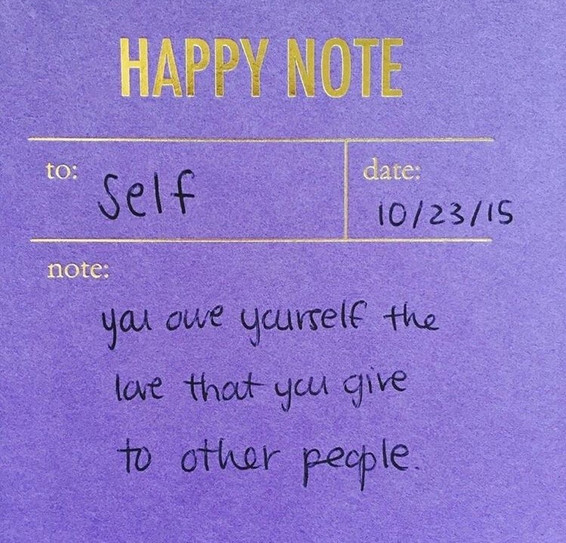 HAPPY NOTE
to: Self
date: 10/23/15
note:
you owe yourself the
love that you give
to other people.